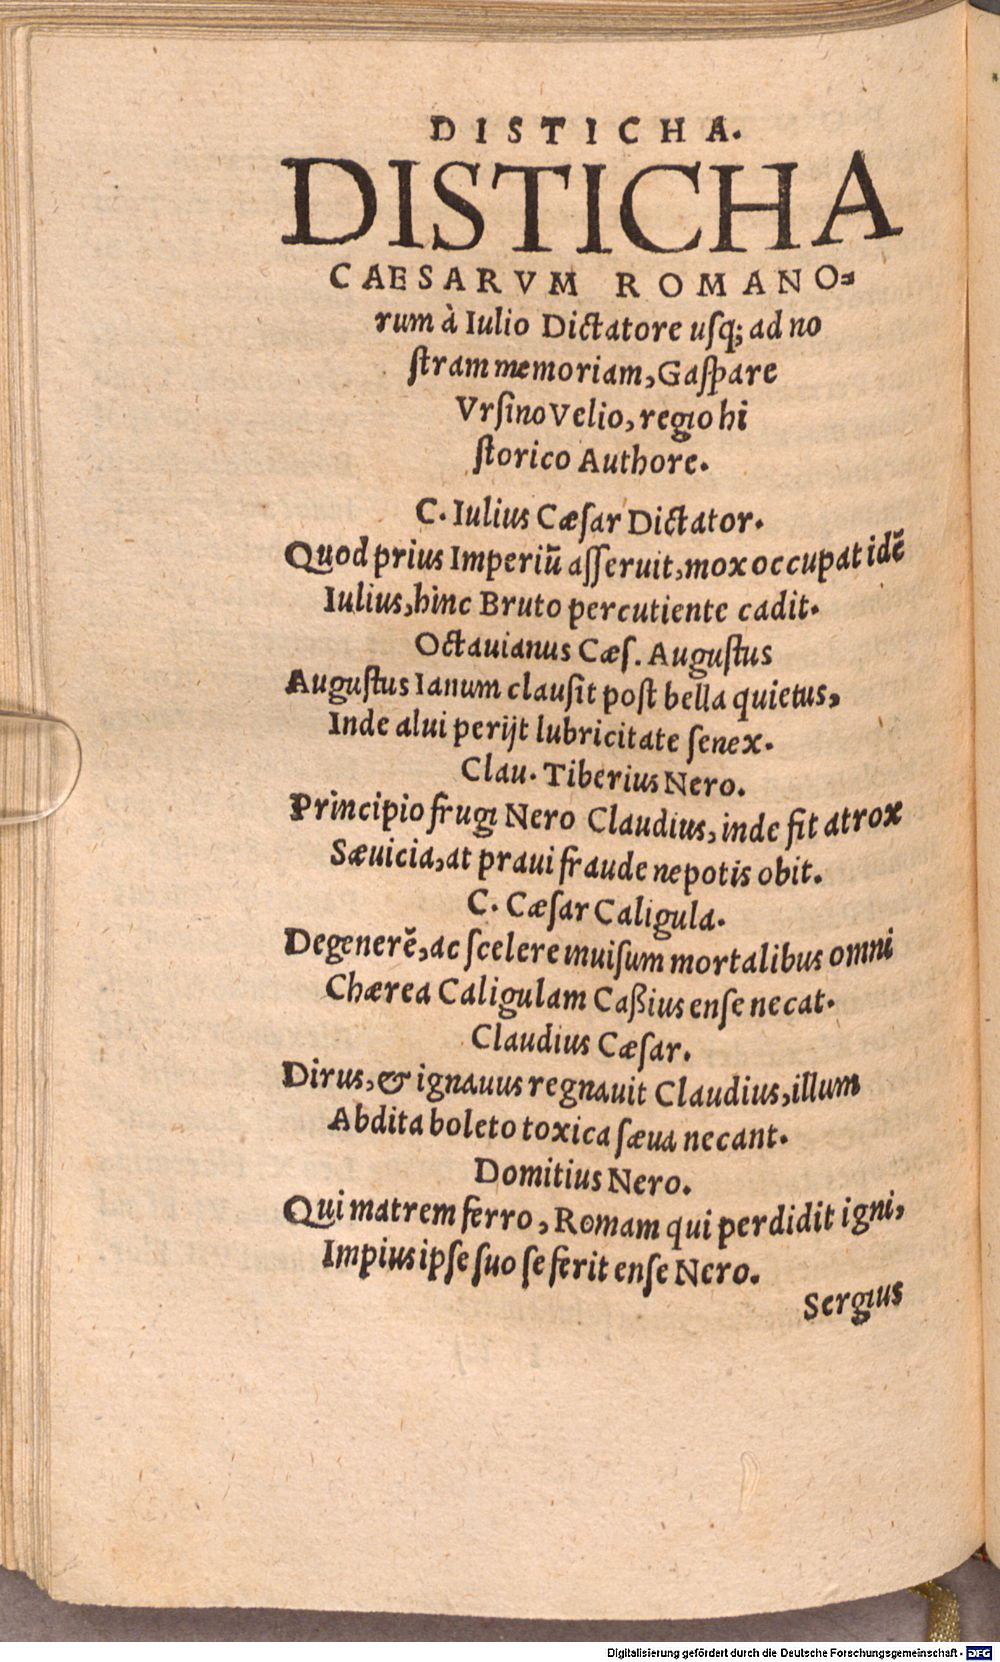 DISTICHA.
DISTICHA
CAESARVM ROMANO=
rum à Iulio Dictatore uſq; ad no
ſtram memoriam, Gaſpare
Vrſino Velio, regio hi
ſtorico Authore.
C. Iulius Cæſar Dictator.
Quod prius Imperiū aſſeruit, mox occupat idē
Iulius, hinc Bruto percutiente cadit.
Octauianus Cæſ. Auguſtus
Auguſtus Ianum clauſit poſt bella quietus,
Inde alui perijt lubricitate ſenex.
Clau. Tiberius Nero.
Principio frugi Nero Claudius, inde fit atrox
Sæuicia, at praui fraude nepotis obit.
C. Cæſar Caligula.
Degenerē, ac ſcelere inuiſum mortalibus omni
Chærea Caligulam Caßius enſe necat.
Claudius Cæſar.
Dirus, & ignauus regnauit Claudius, illum
Abdita boleto toxica ſæua necant.
Domitius Nero.
Qui matrem ferro, Romam qui perdidit igni,
Impius ipſe ſuo ſe ferit enſe Nero.
Sergius
Digitalisierung gefördert durch die Deutsche Forschungsgemeinschaft - DFG